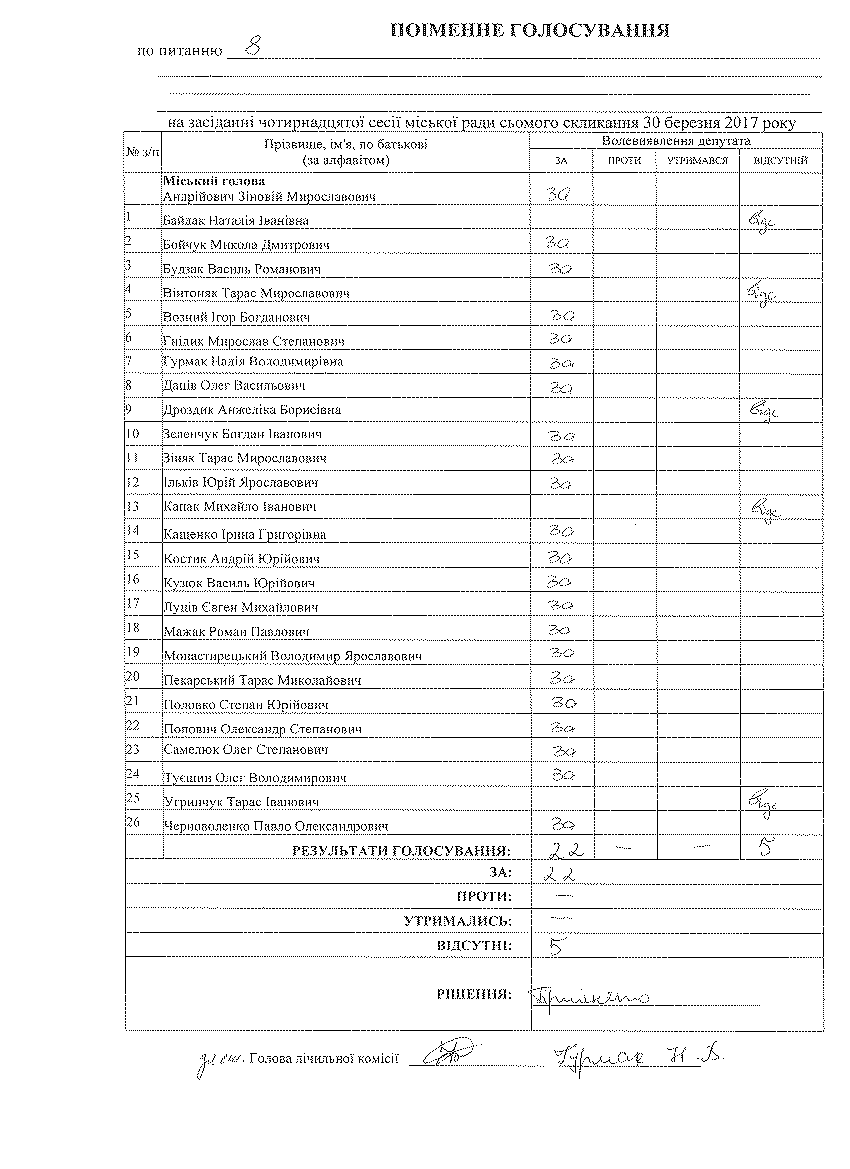 ПОІМЕННЕ ГОЛОСУВАННЯ
по питанню 8
на засіданні чотирнадцятої сесії міської ради сьомого скликання 30 березня 2017 року
№ з/п Прізвище, ім'я, по батькові (за алфавітом) Волевиявлення депутата
ЗА ПРОТИ УТРИМАВСЯ ВІДСУТНІЙ
Міський голова
Андрійович Зіновій Мирославович за
1 Байдак Наталія Іванівна відс
2 Бойчук Микола Дмитрович за
3 Будзак Василь Романович за
4 Вінтоняк Тарас Мирославович відс
5 Возний Ігор Богданович за
6 Гнідик Мирослав Степанович за
7 Гурмак Надія Володимирівна за
8 Даців Олег Васильович за
9 Дроздик Анжеліка Борисівна відс
10 Зеленчук Богдан Іванович за
11 Зіняк Тарас Мирославович за
12 Ільків Юрій Ярославович за
13 Капак Михайло Іванович відс
14 Кащенко Ірина Григорівна за
15 Костик Андрій Юрійович за
16 Кузюк Василь Юрійович за
17 Луців Євген Михайлович за
18 Мажак Роман Павлович за
19 Монастирецький Володимир Ярославович за
20 Пекарський Тарас Миколайович за
21 Половко Степан Юрійович за
22 Попович Олександр Степанович за
23 Самелюк Олег Степанович за
24 Туєшин Олег Володимирович за
25 Угринчук Тарас Іванович відс
26 Черноволенко Павло Олександрович за
РЕЗУЛЬТАТИ ГОЛОСУВАННЯ: 22 — — 5
ЗА: 22
ПРОТИ: —
УТРИМАЛИСЬ: —
ВІДСУТНІ: 5
РІШЕННЯ: Прийнято
Голова лічильної комісії Гурмак Н.В.